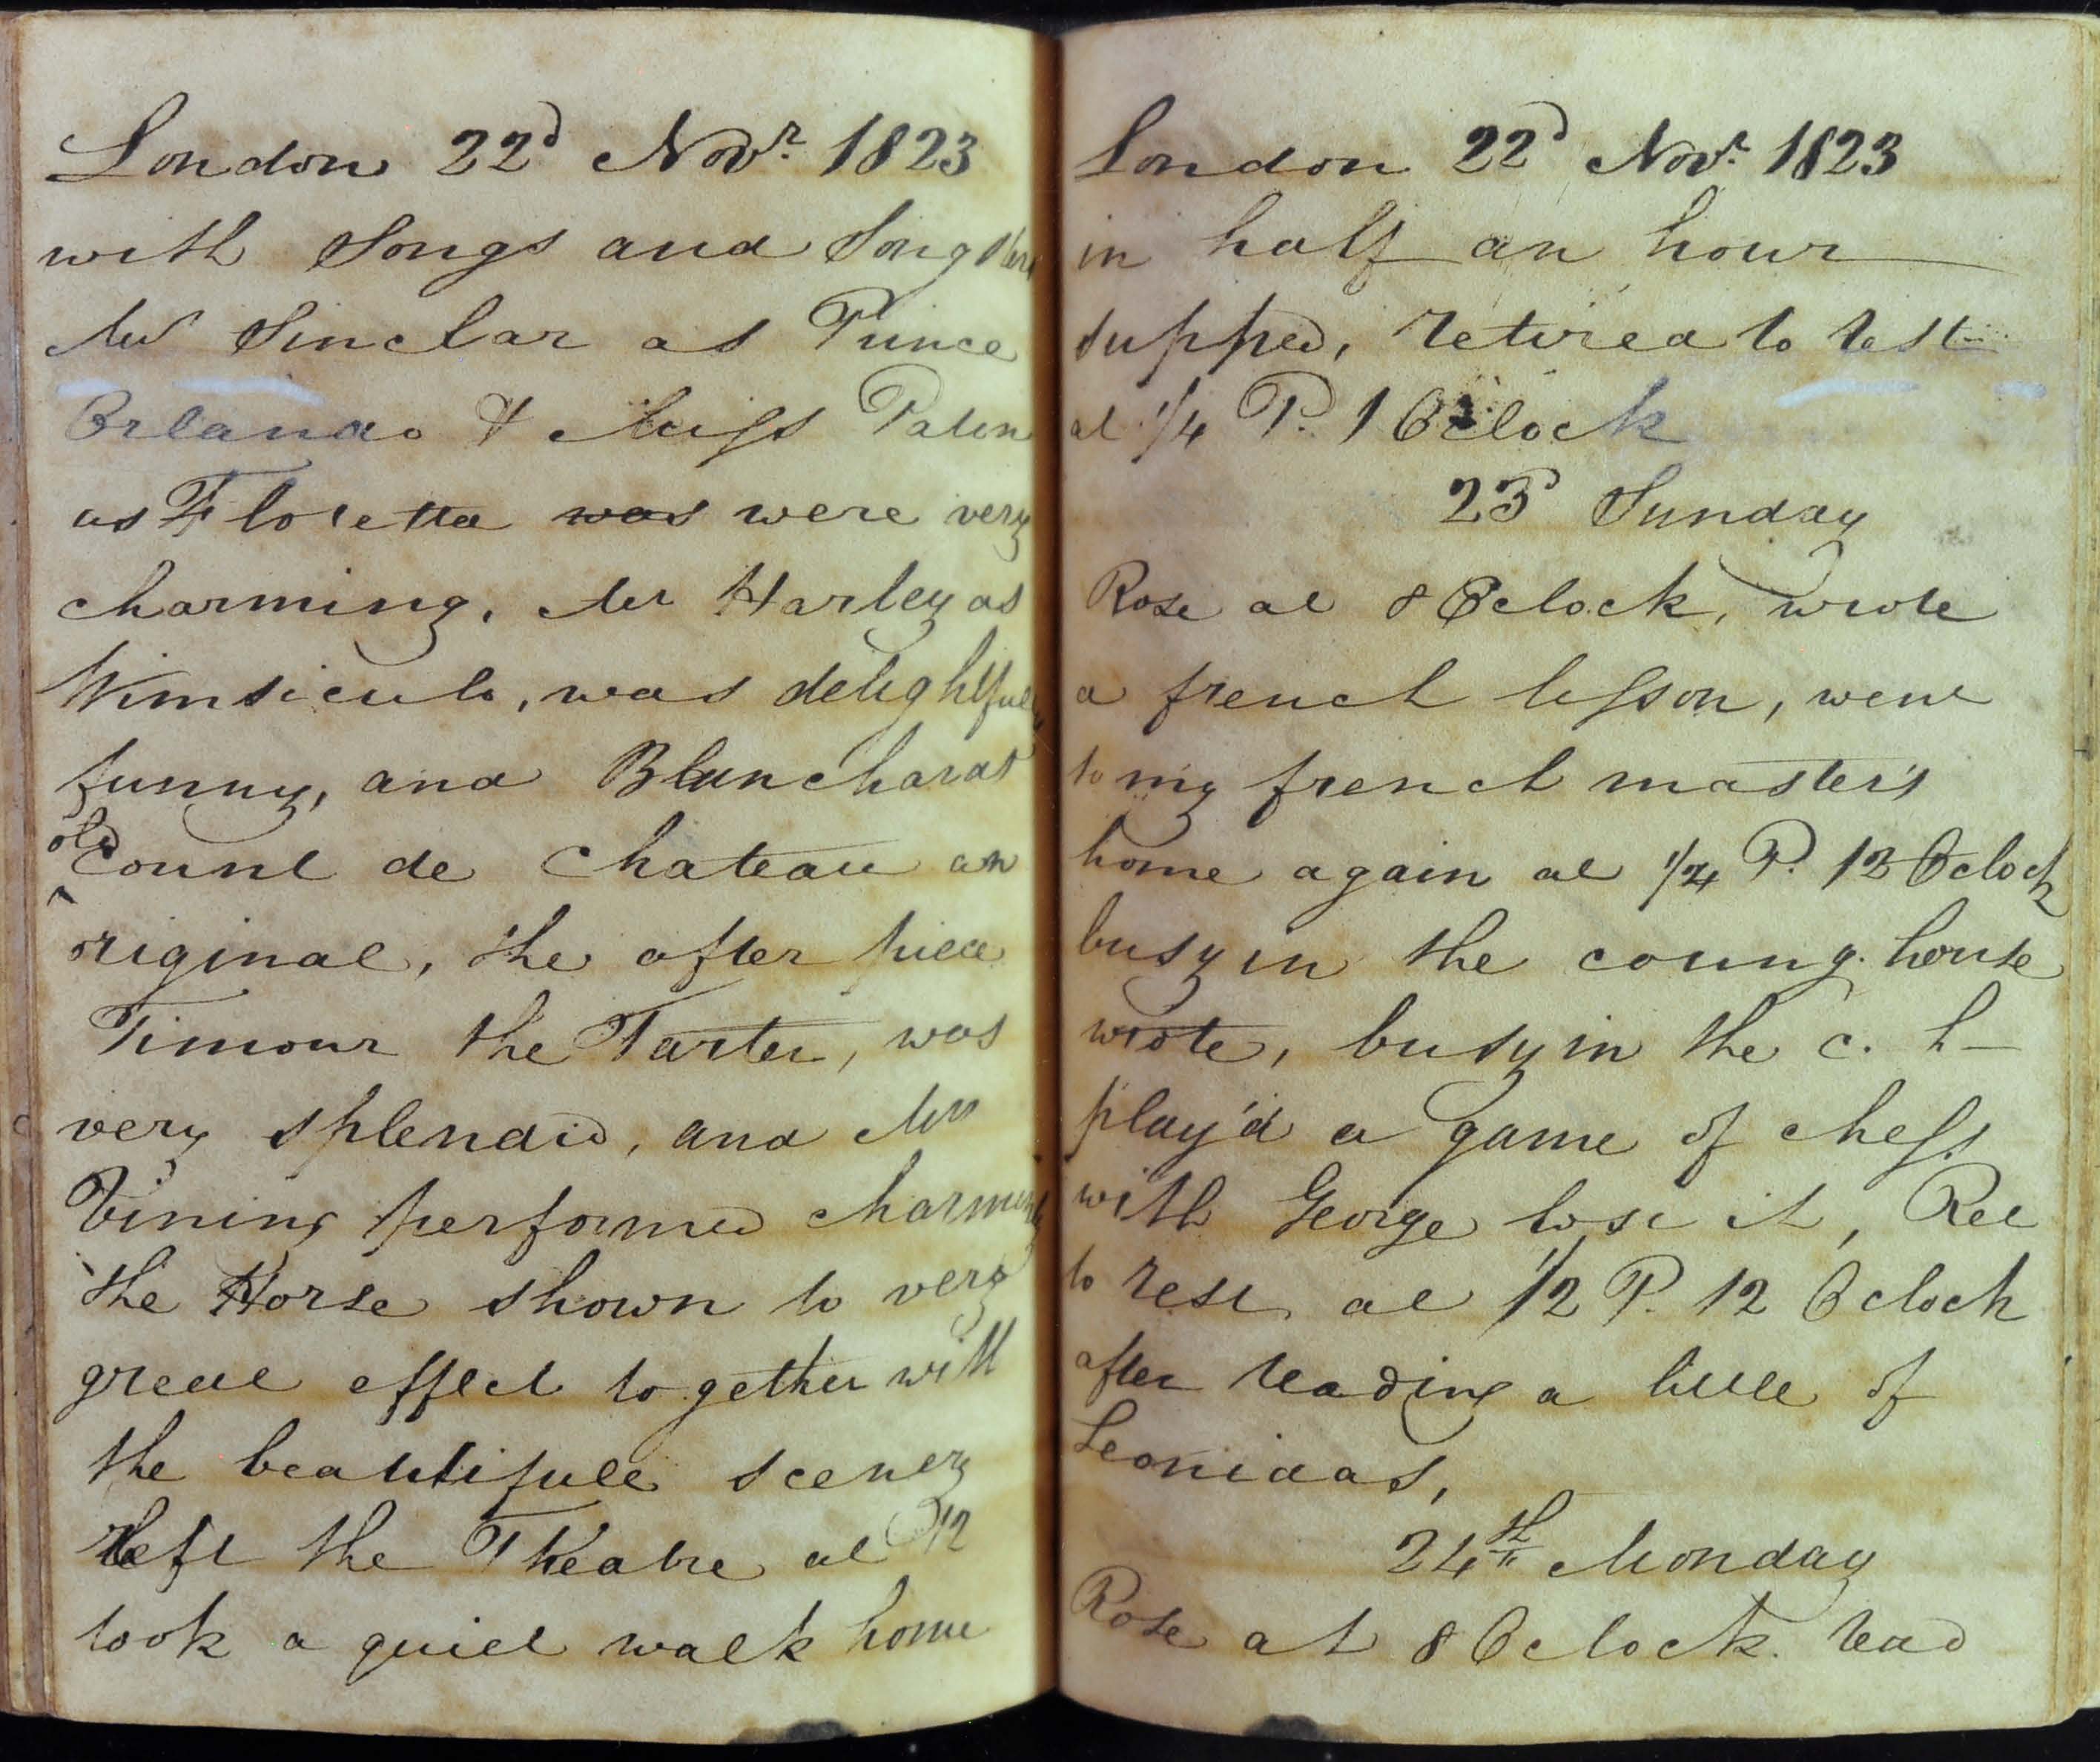 London 22d Novr. 1823
with Songs and Songsters
Mr Sinclar as Prince
Orlando & Miss Paton
as Floretta was were very
charming, Mr Harley as
Wimsiculo, was delightfully
funny, and Blanchard
old
Count de Chateau an
original, the after piece
Timour the Tarter, was
very splendid, and Mr
Vining performed charmingly
the Horse shown to very
great effect together with
the beautifull scenery
left the Theatre at 12
took a quiet walk home
London 22d Novr. 1823
in half an hour
supped, retired to rest
at 1/4 P. 1 Oclock
23d Sunday
Rose at 8 Oclock, wrote
a french lesson, went
to my french master's
home again at 1/4 P. 12 Oclock
busy in the coung. house
wrote, busy in the c. h
play'd a game of chess
with George lost it, Ret
to rest at 1/2 P. 12 Oclock
after reading a little of
Leonidas,
24th Monday
Rose at 8 Oclock. read